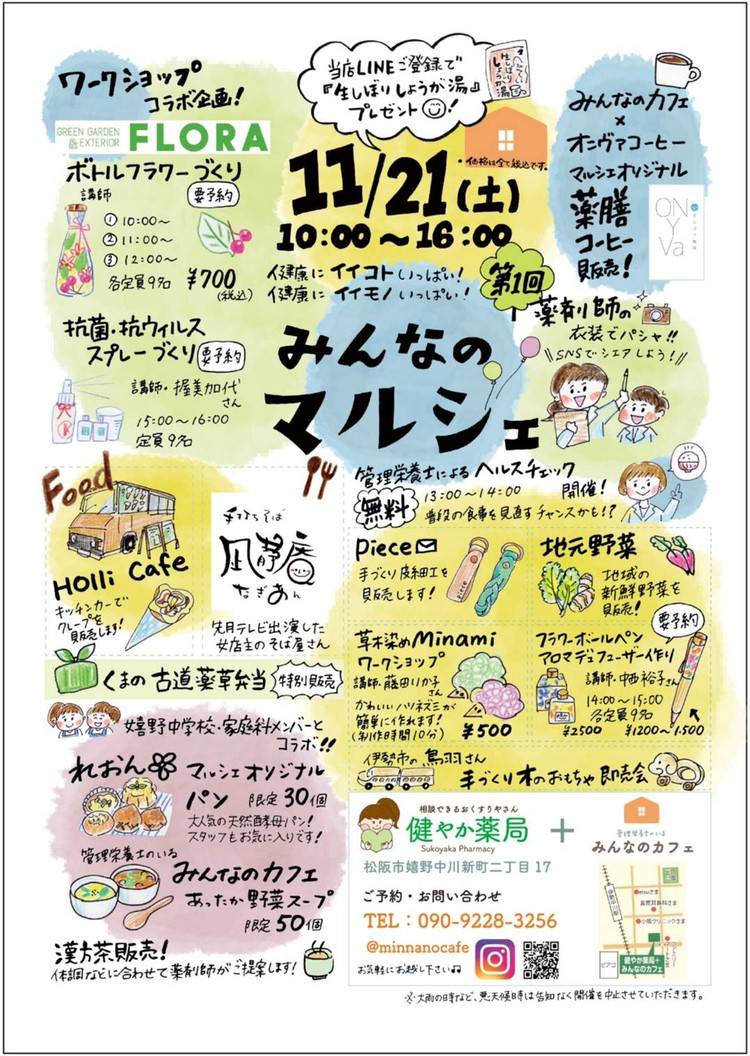 ワークショップ
コラボ企画!
GREEN GARDEN
& EXTERIOR
FLORA
ボトルフラワーづくり
講師
要予約
① 10:00〜
② 11:00〜
③ 12:00〜
各定員9名
¥700
(税込)
当店LINEご登録で
『生しぼりしょうが湯』
プレゼント!
生しぼり
しょうが湯
・価格は全て税込です。
11/21(土)
10:00〜16:00
健康にイイコトいっぱい!
健康にイイモノいっぱい!
第1回
みんなの
マルシェ
みんなのカフェ
×
オンヴァコーヒー
マルシェオリジナル
薬膳
コーヒー
販売!
ON
Y
Va
薬剤師の
衣装でパシャ!!
\\SNSでシェアしよう!//
抗菌・抗ウィルス
スプレーづくり
要予約
講師・握美加代さん
15:00〜16:00
定員9名
管理栄養士によるヘルスチェック
無料
13:00〜14:00
開催!
普段の食事を見直すチャンスかも!?
Food
Holli Cafe
キッチンカーで
クレープを
販売します!
手打ちそば
凪静庵
なぎあん
先月テレビ出演した
女店主のそば屋さん
piece
手づくり皮細工を
販売します!
地元野菜
地域の
新鮮野菜を
販売!
草木染めMinami
ワークショップ
講師・藤田りか子さん
かわいいハリネズミが
簡単に作れます!
(制作時間10分)
¥500
要予約
フラワーボールペン
アロマデュフューザー作り
講師・中西裕子さん
14:00〜15:00
各定員9名
¥2500
¥1200〜1,500
くまの古道薬草弁当
特別販売
嬉野中学校・家庭科メンバーと
コラボ!!
れおん
マルシェオリジナル
パン 限定30個
大気の天然酵母パン!
スタッフもお気に入りです!
管理栄養士のいる
みんなのカフェ
あったか野菜スープ
限定50個
漢方茶販売!
体調などに合わせて薬剤師がご提案します!
伊勢市の鳥羽さん
手づくり木のおもちゃ即売会
相談できるおくすりやさん
健やか薬局
Sukoyaka Pharmacy
+
管理栄養士のいる
みんなのカフェ
松阪市嬉野中川新町二丁目17
ご予約・お問い合わせ
TEL:090-9228-3256
@minnanocafe
お気軽にお越し下さい♫
ピアゴ
健やか薬局+
みんなのカフェ
※・大雨の時など、荒天候時は告知なく開催を中止させていただきます。